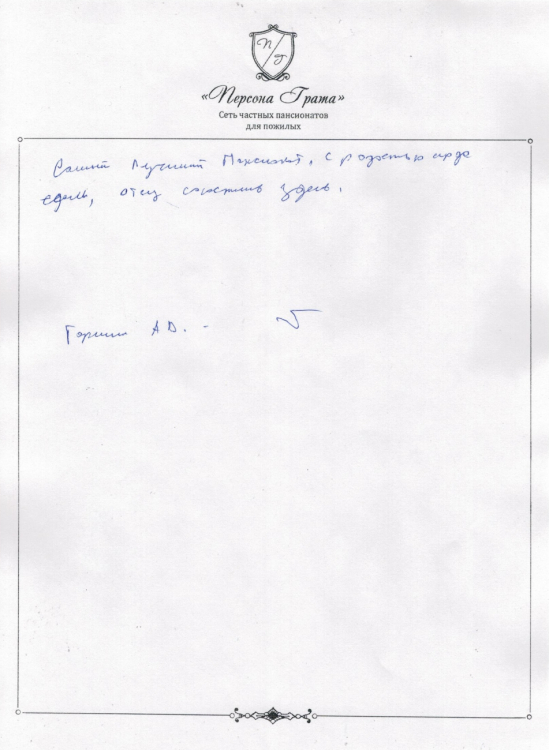 П/Г
«Персона Грата»
Сеть частных пансионатов
для пожилых
Самый лучший Пансионат, с радостью сюда
едем, отец счастлив здесь.
А.В. -